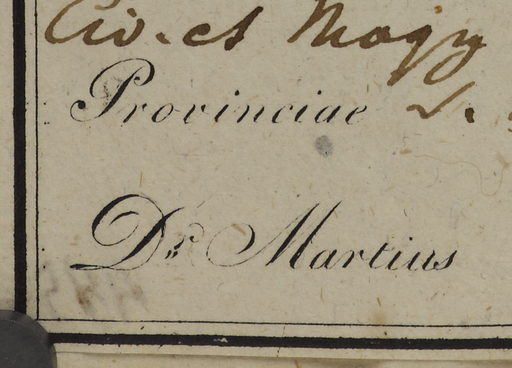 Civ. et Mogy
Provinciae
Dr. Martius